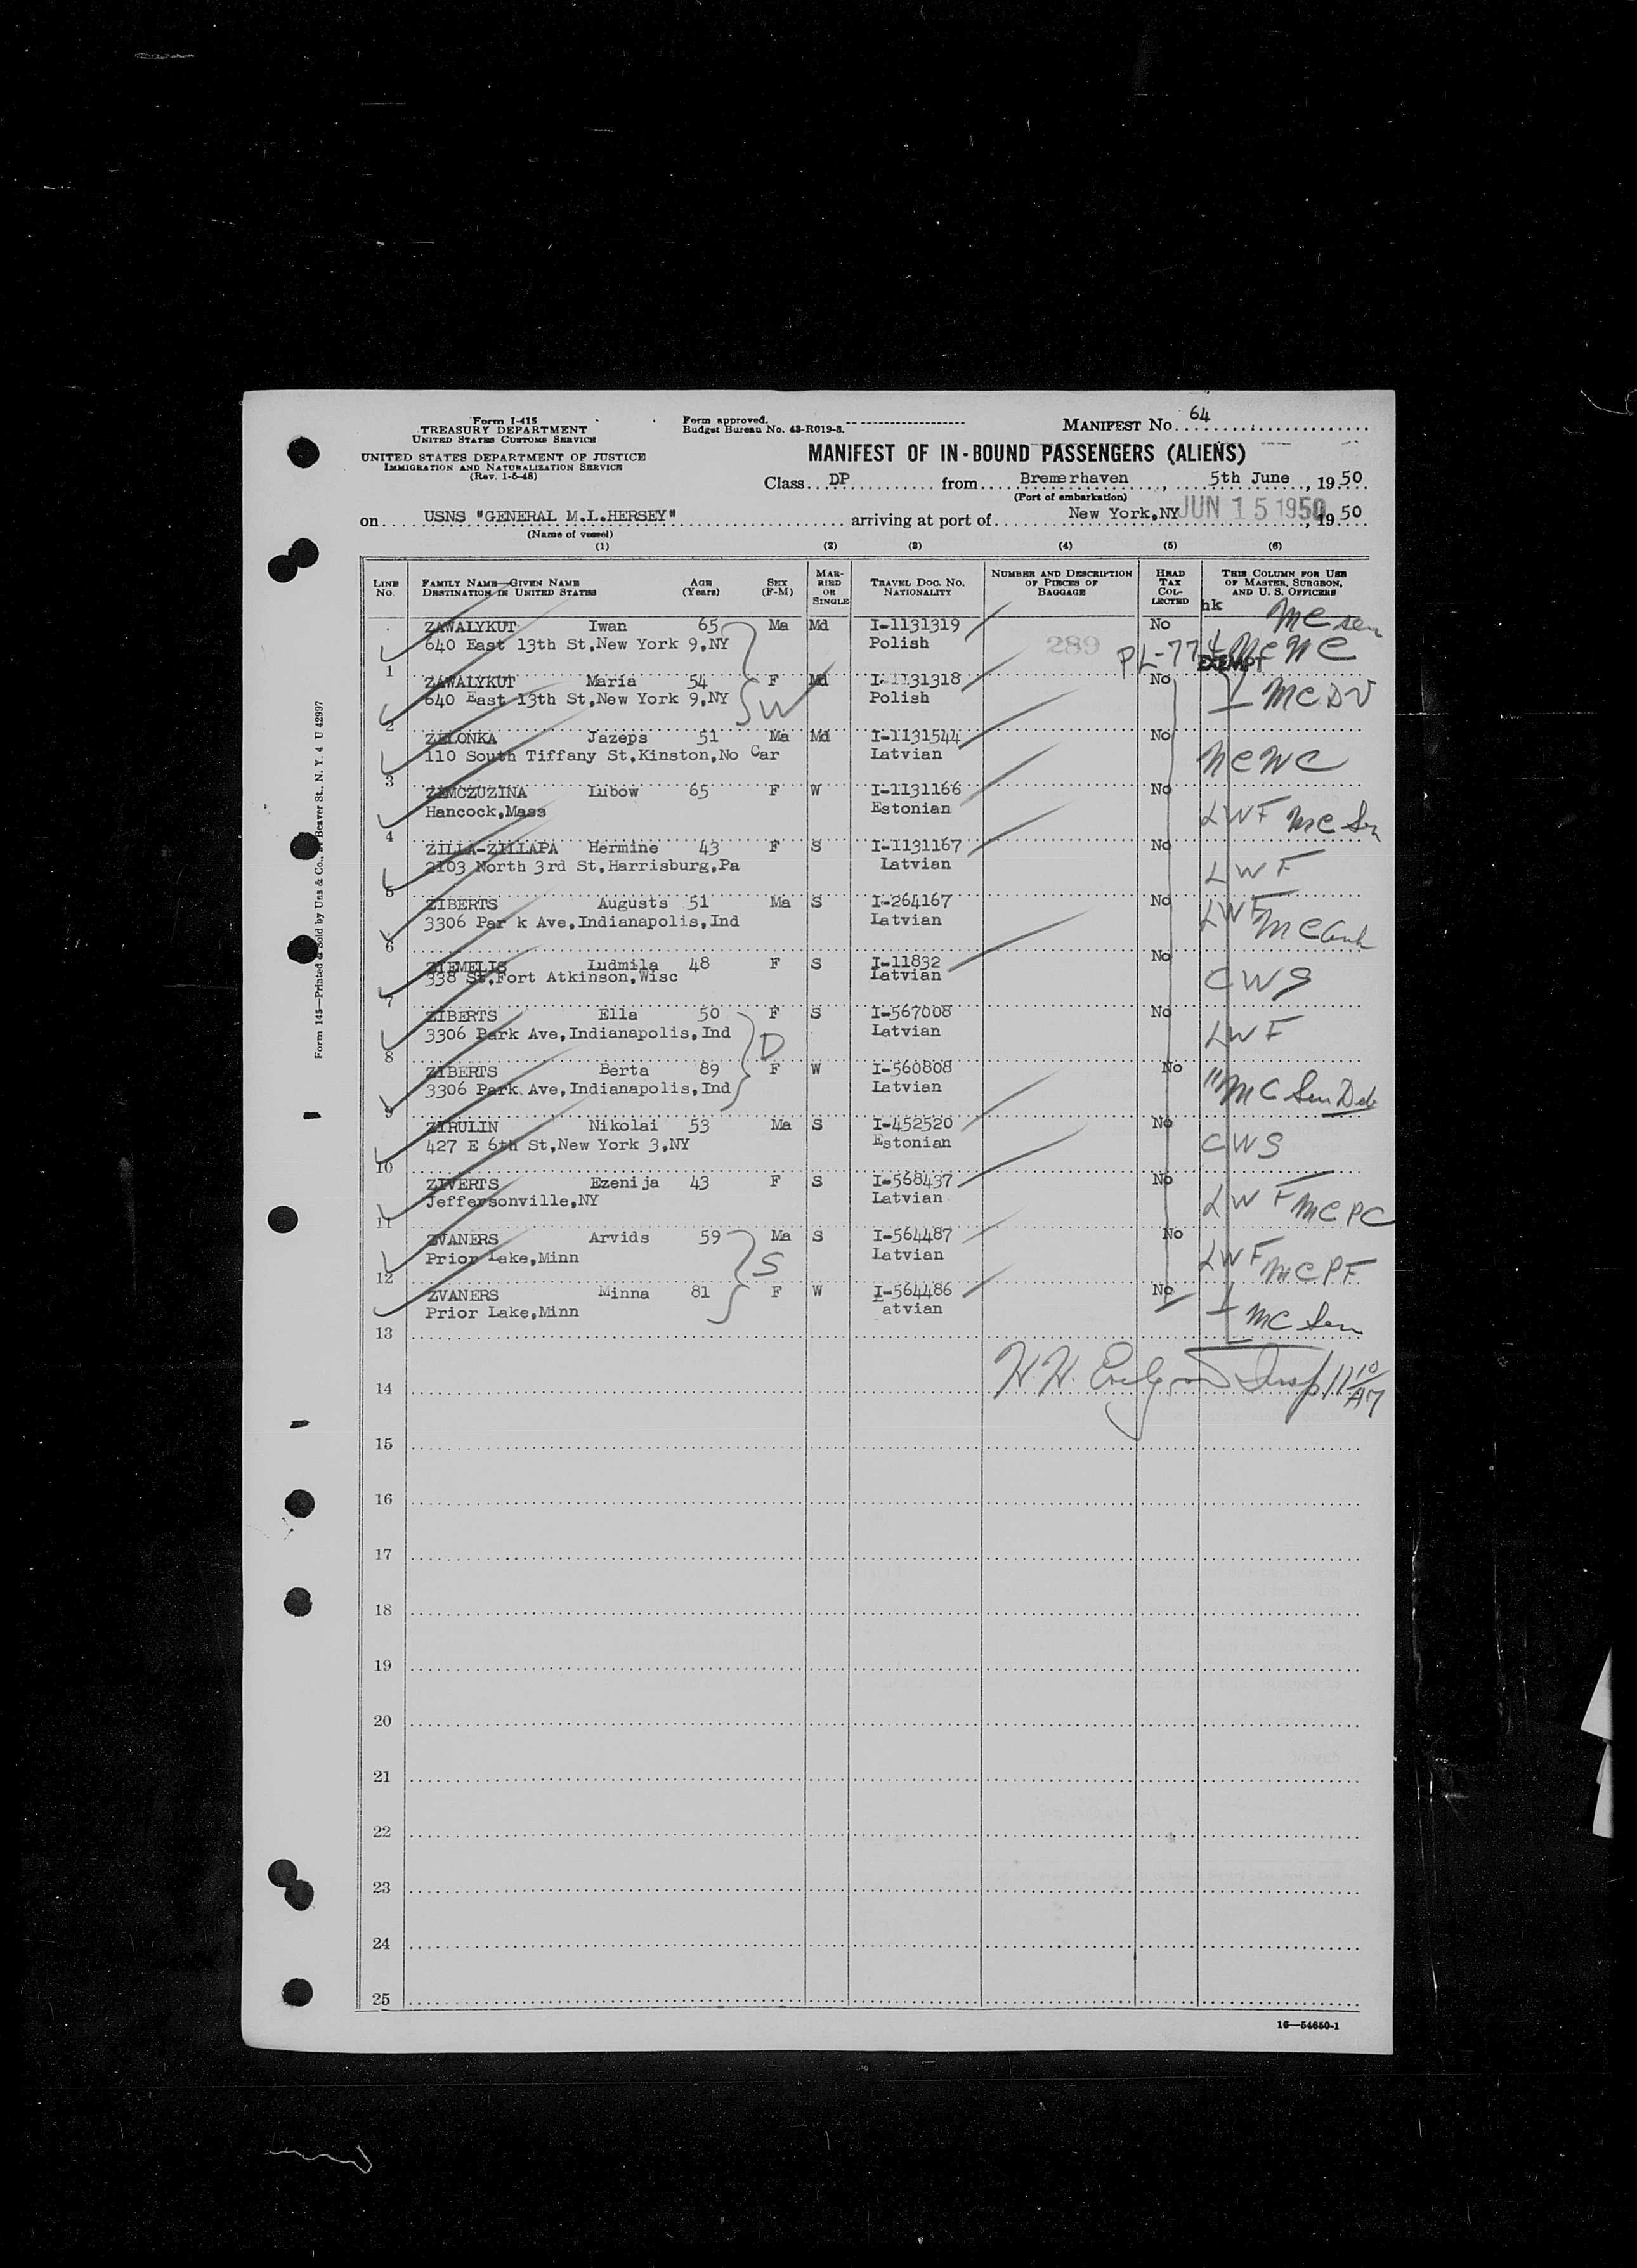 Form I-415
TREASURY DEPARTMENT
UNITED STATES CUSTOMS SERVICE
UNITED STATES DEPARTMENT OF JUSTICE
IMMIGRATION AND NATURALIZATION SERVICE
(Rev. 1-5-48)
Form approved.
Budget Bureau No. 43-R019-3.
MANIFEST No. 64
MANIFEST OF IN-BOUND PASSENGERS (ALIENS)
Class DP from Bremerhaven, 5th June, 1950
(Port of embarkation)
on USNS "GENERAL M.L.HERSEY" arriving at port of New York,NY JUN 15 1950, 1950
(Name of vessel)
(1) (2) (3) (4) (5) (6)
LINE NO. FAMILY NAME—GIVEN NAME DESTINATION IN UNITED STATES AGE (Years) SEX (F-M) MARRIED OR SINGLE TRAVEL DOC. NO. NATIONALITY NUMBER AND DESCRIPTION OF PIECES OF BAGGAGE HEAD TAX COLLECTED THIS COLUMN FOR USE OF MASTER, SURGEON, AND U. S. OFFICERS
hk
ZAWALYKUT Iwan 65 Ma Md I-1131319 No MC sen
640 East 13th St,New York 9,NY Polish 289 PL-774 NCWC
EXEMPT
1
ZAWALYKUT Maria 54 F Md I-1131318 No MC DV
640 East 13th St,New York 9,NY W Polish
2
ZELONKA Jazeps 51 Ma Md I-1131544 No
110 South Tiffany St,Kinston,No Car Latvian NCWC
3
ZEMCZUZINA Lubow 65 F W I-1131166 No
Hancock,Mass Estonian LWF MC Sen
4
ZILLA-ZILLAPA Hermine 43 F S I-1131167 No
2103 North 3rd St,Harrisburg,Pa Latvian LWF
5
ZIBERTS Augusts 51 Ma S I-264167 No LWF
3306 Par k Ave,Indianapolis,Ind Latvian MC
6
ZIEMELIS Ludmila 48 F S I-11832 No
338 St,Fort Atkinson,Wisc Latvian CWS
7
ZIBERTS Ella 50 F S I-567008 No
3306 Park Ave,Indianapolis,Ind D Latvian LWF
8
ZIBERTS Berta 89 F W I-560808 No
3306 Park Ave,Indianapolis,Ind Latvian " MC Sen Deb
9
ZIRULIN Nikolai 53 Ma S I-452520 No
427 E 6th St,New York 3,NY Estonian CWS
10
ZIVERTS Ezenija 43 F S I-568437 No
Jeffersonville,NY Latvian LWF MC PC
11
ZVANERS Arvids 59 Ma S I-564487 No
Prior Lake,Minn S Latvian LWF MC PF
12
ZVANERS Minna 81 F W I-564486 No
Prior Lake,Minn atvian MC Sen
13
14 Insp 11 10/AM
15
16
17
18
19
20
21
22
23
24
25
16—54650-1
Form 145—Printed & Sold by Unz & Co., Beaver St., N. Y. 4 U 42997